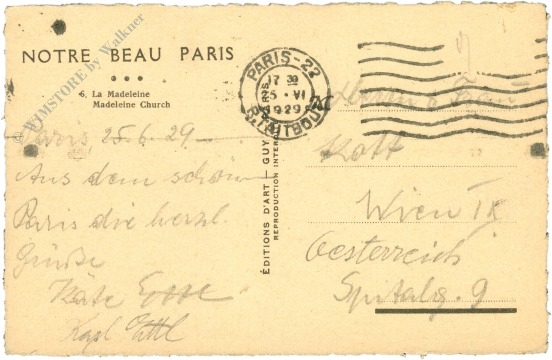 WIMSTORE by Walkner
NOTRE BEAU PARIS
6. La Madeleine
Madeleine Church
PARIS-22
17 30
25 · VI
1929
R. TAITBOUT
Paris, 25.6.29.
Aus dem schön
Paris die herzl.
Grüße
Käte
Karl Ettl
ÉDITIONS D'ART - GUY
REPRODUCTION INTER
Herrn & Frau
Kott
Wien IX
Oesterreich
Spitalg. 9